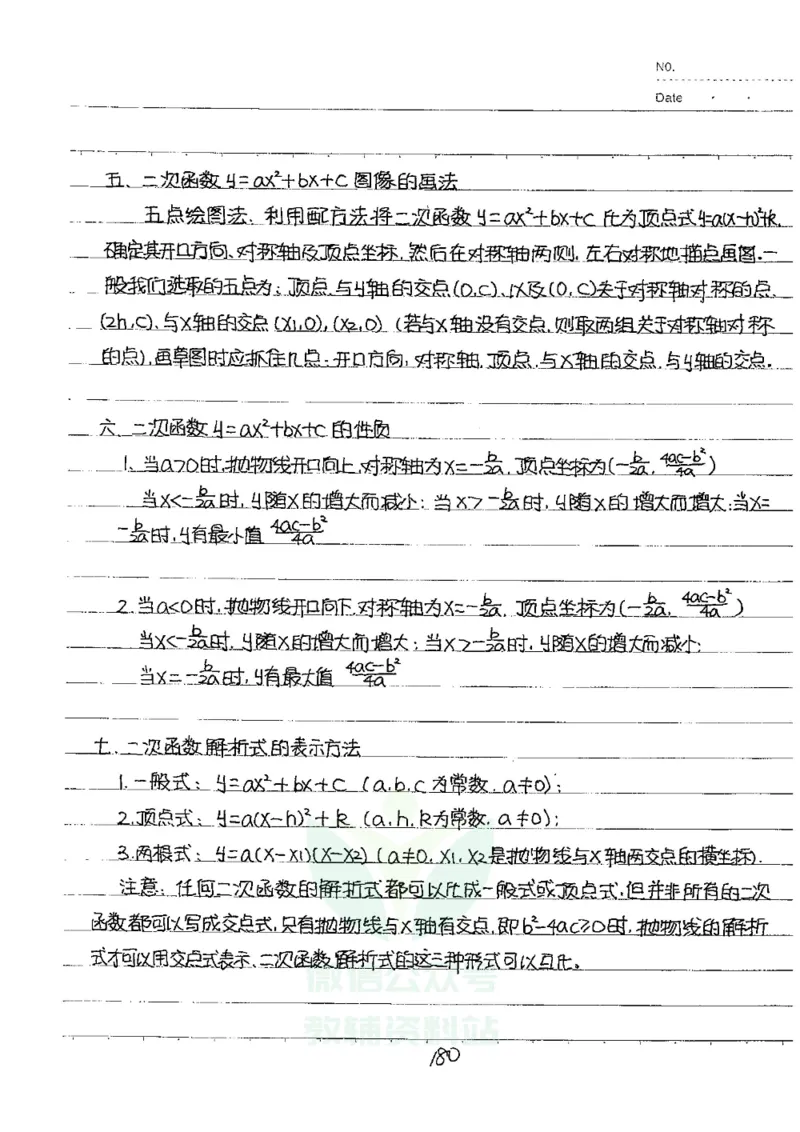 NO.
Date
五、二次函数y=ax²+bx+c图像的画法
五点绘图法、利用配方法将二次函数y=ax²+bx+c化为顶点式y=a(x-h)²+k,
确定其开口方向、对称轴及顶点坐标,然后在对称轴两侧,左右对称地描点画图.一
般我们选取的五点为:顶点、与y轴的交点(0,c)、以及(0,c)关于对称轴对称的点
(2h,c)、与x轴的交点(x1,0),(x2,0)(若与x轴没有交点,则取两组关于对称轴对称
的点),画草图时应抓住几点:开口方向,对称轴,顶点,与x轴的交点,与y轴的交点.
六、二次函数y=ax²+bx+c的性质
1、当a>0时,抛物线开口向上,对称轴为x=-b/2a,顶点坐标为(-b/2a,4ac-b²/4a)
当x<-b/2a时,y随x的增大而减小;当x>-b/2a时,y随x的增大而增大;当x=
-b/2a时,y有最小值4ac-b²/4a
2.当a<0时,抛物线开口向下,对称轴为x=-b/2a,顶点坐标为(-b/2a,4ac-b²/4a)
当x<-b/2a时,y随x的增大而增大;当x>-b/2a时,y随x的增大而减小;
当x=-b/2a时,y有最大值4ac-b²/4a
七、二次函数解析式的表示方法
1.一般式:y=ax²+bx+c(a,b,c为常数,a≠0);
2.顶点式:y=a(x-h)²+k(a,h,k为常数,a≠0);
3.两根式:y=a(x-x1)(x-x2)(a≠0,x1,x2是抛物线与x轴两交点的横坐标).
注意:任何二次函数的解析式都可以化成一般式或顶点式,但并非所有的二次
函数都可以写成交点式,只有抛物线与x轴有交点,即b²-4ac≥0时,抛物线的解析
式才可以用交点式表示、二次函数解析式的这三种形式可以互化。
微信公众号
教辅资料站
180